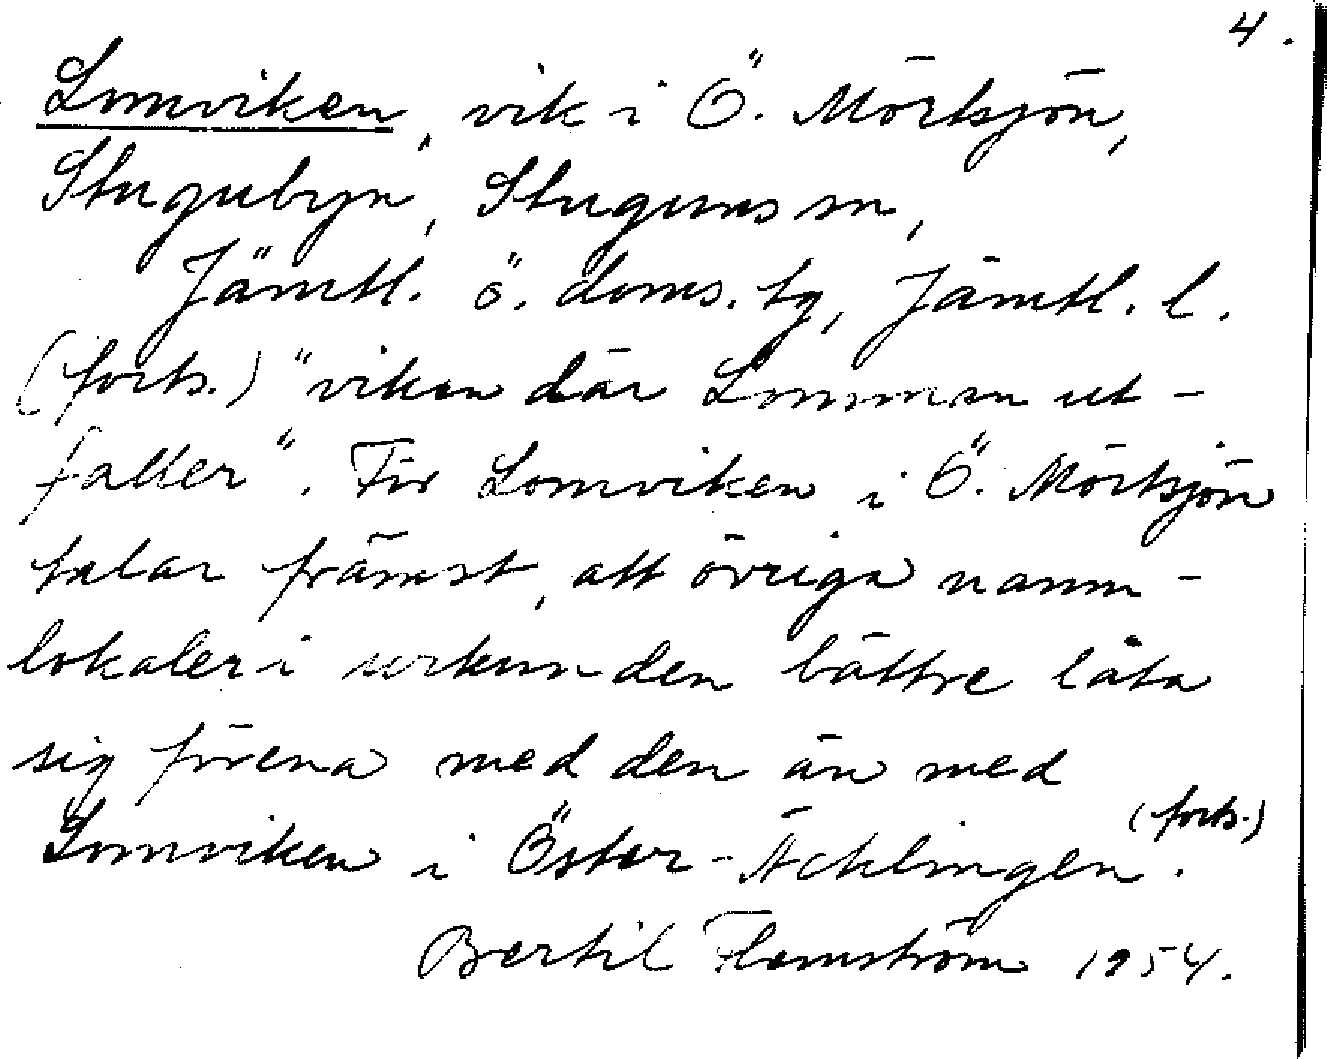 4.
Lomviken, vik i Ö. Mörtsjön,
Stugubyn, Stuguns sn,
Jämtl. ö. doms. tg, Jämtl. l.
(forts.) "viken där Lommen ut-
faller". För Lomviken i Ö. Mörtsjön
talar främst, att övriga namn-
lokaler i urkunden bättre låta
sig förena med den än med
Lomviken i Öster-Äcklingen. (forts.)
Bertil Flemström 1954.